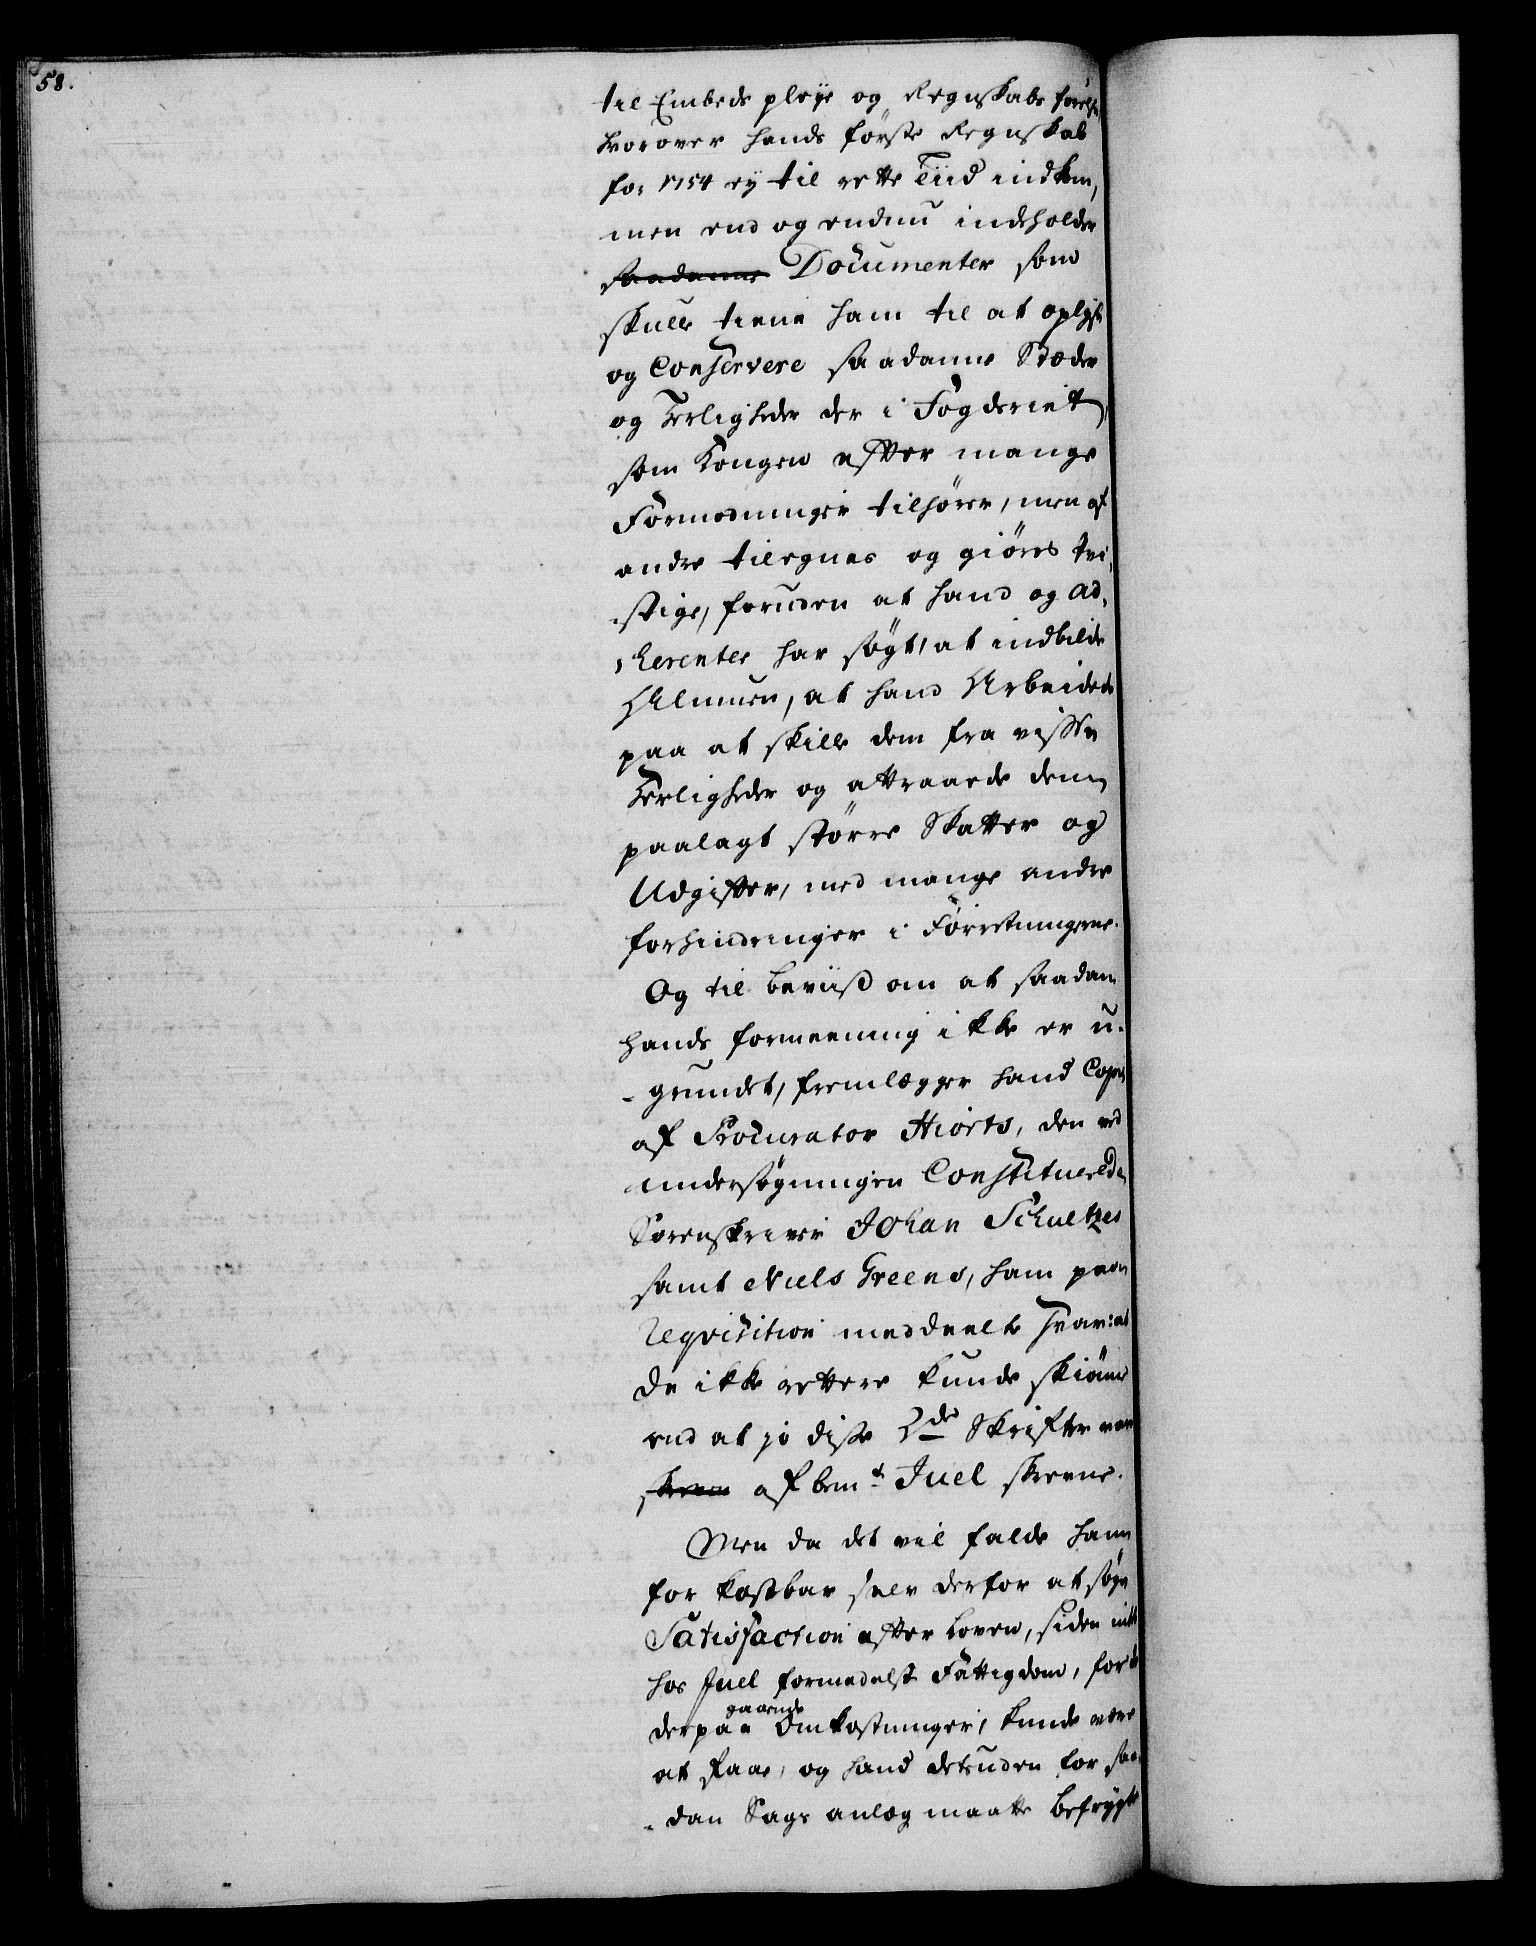 58.
til Embeds pleÿe og Regnskabs førelse
hvorover hands første Regnskab
for 1754 eÿ til rette Tiid indkom,
men end og endnu indeholder
saadanne Documenter som
skulle tiene ham til at oplyse
og Conservere saadanne Stæder
og Herligheder der i Fogderiet,
som Kongen efter mange
Formodninger tilhører, men af
andre tilegnes og giøres tvi¬
stige, foruden at hand og ad¬
herenter har søgt, at indbilde
Almuen, at hand Arbeidede
paa at skille dem fra visse
Herligheder og attraaede dem
paalagt større Skatter og
Udgifter, med mange andre
forhindringer i Forretningerne.
Og til beviis om at saadan
hands formeening ikke er u¬
grundet, fremlægger hand Copie
af Procurator Hiorts, den ved
undersøgningen Constituerede
Sorenskriver Johan Schultzes
samt Niels Greens, ham paa
Reqvisition meddeelte Svar: at
de ikke rettere kunde skiønne
end at jo disse 2de Skrifter var
skreven af bemt Juel skrevne.
Men da det vil falde ham
for kostbar selv derfor at søge
Satisfaction efter Loven, siden intet
hos Juel formedelst Fattigdom, for de
derpaa gaaende Omkostninger, kunde være
at faae, og hand desuden for saa¬
dan Sags anlæg maatte befrygte